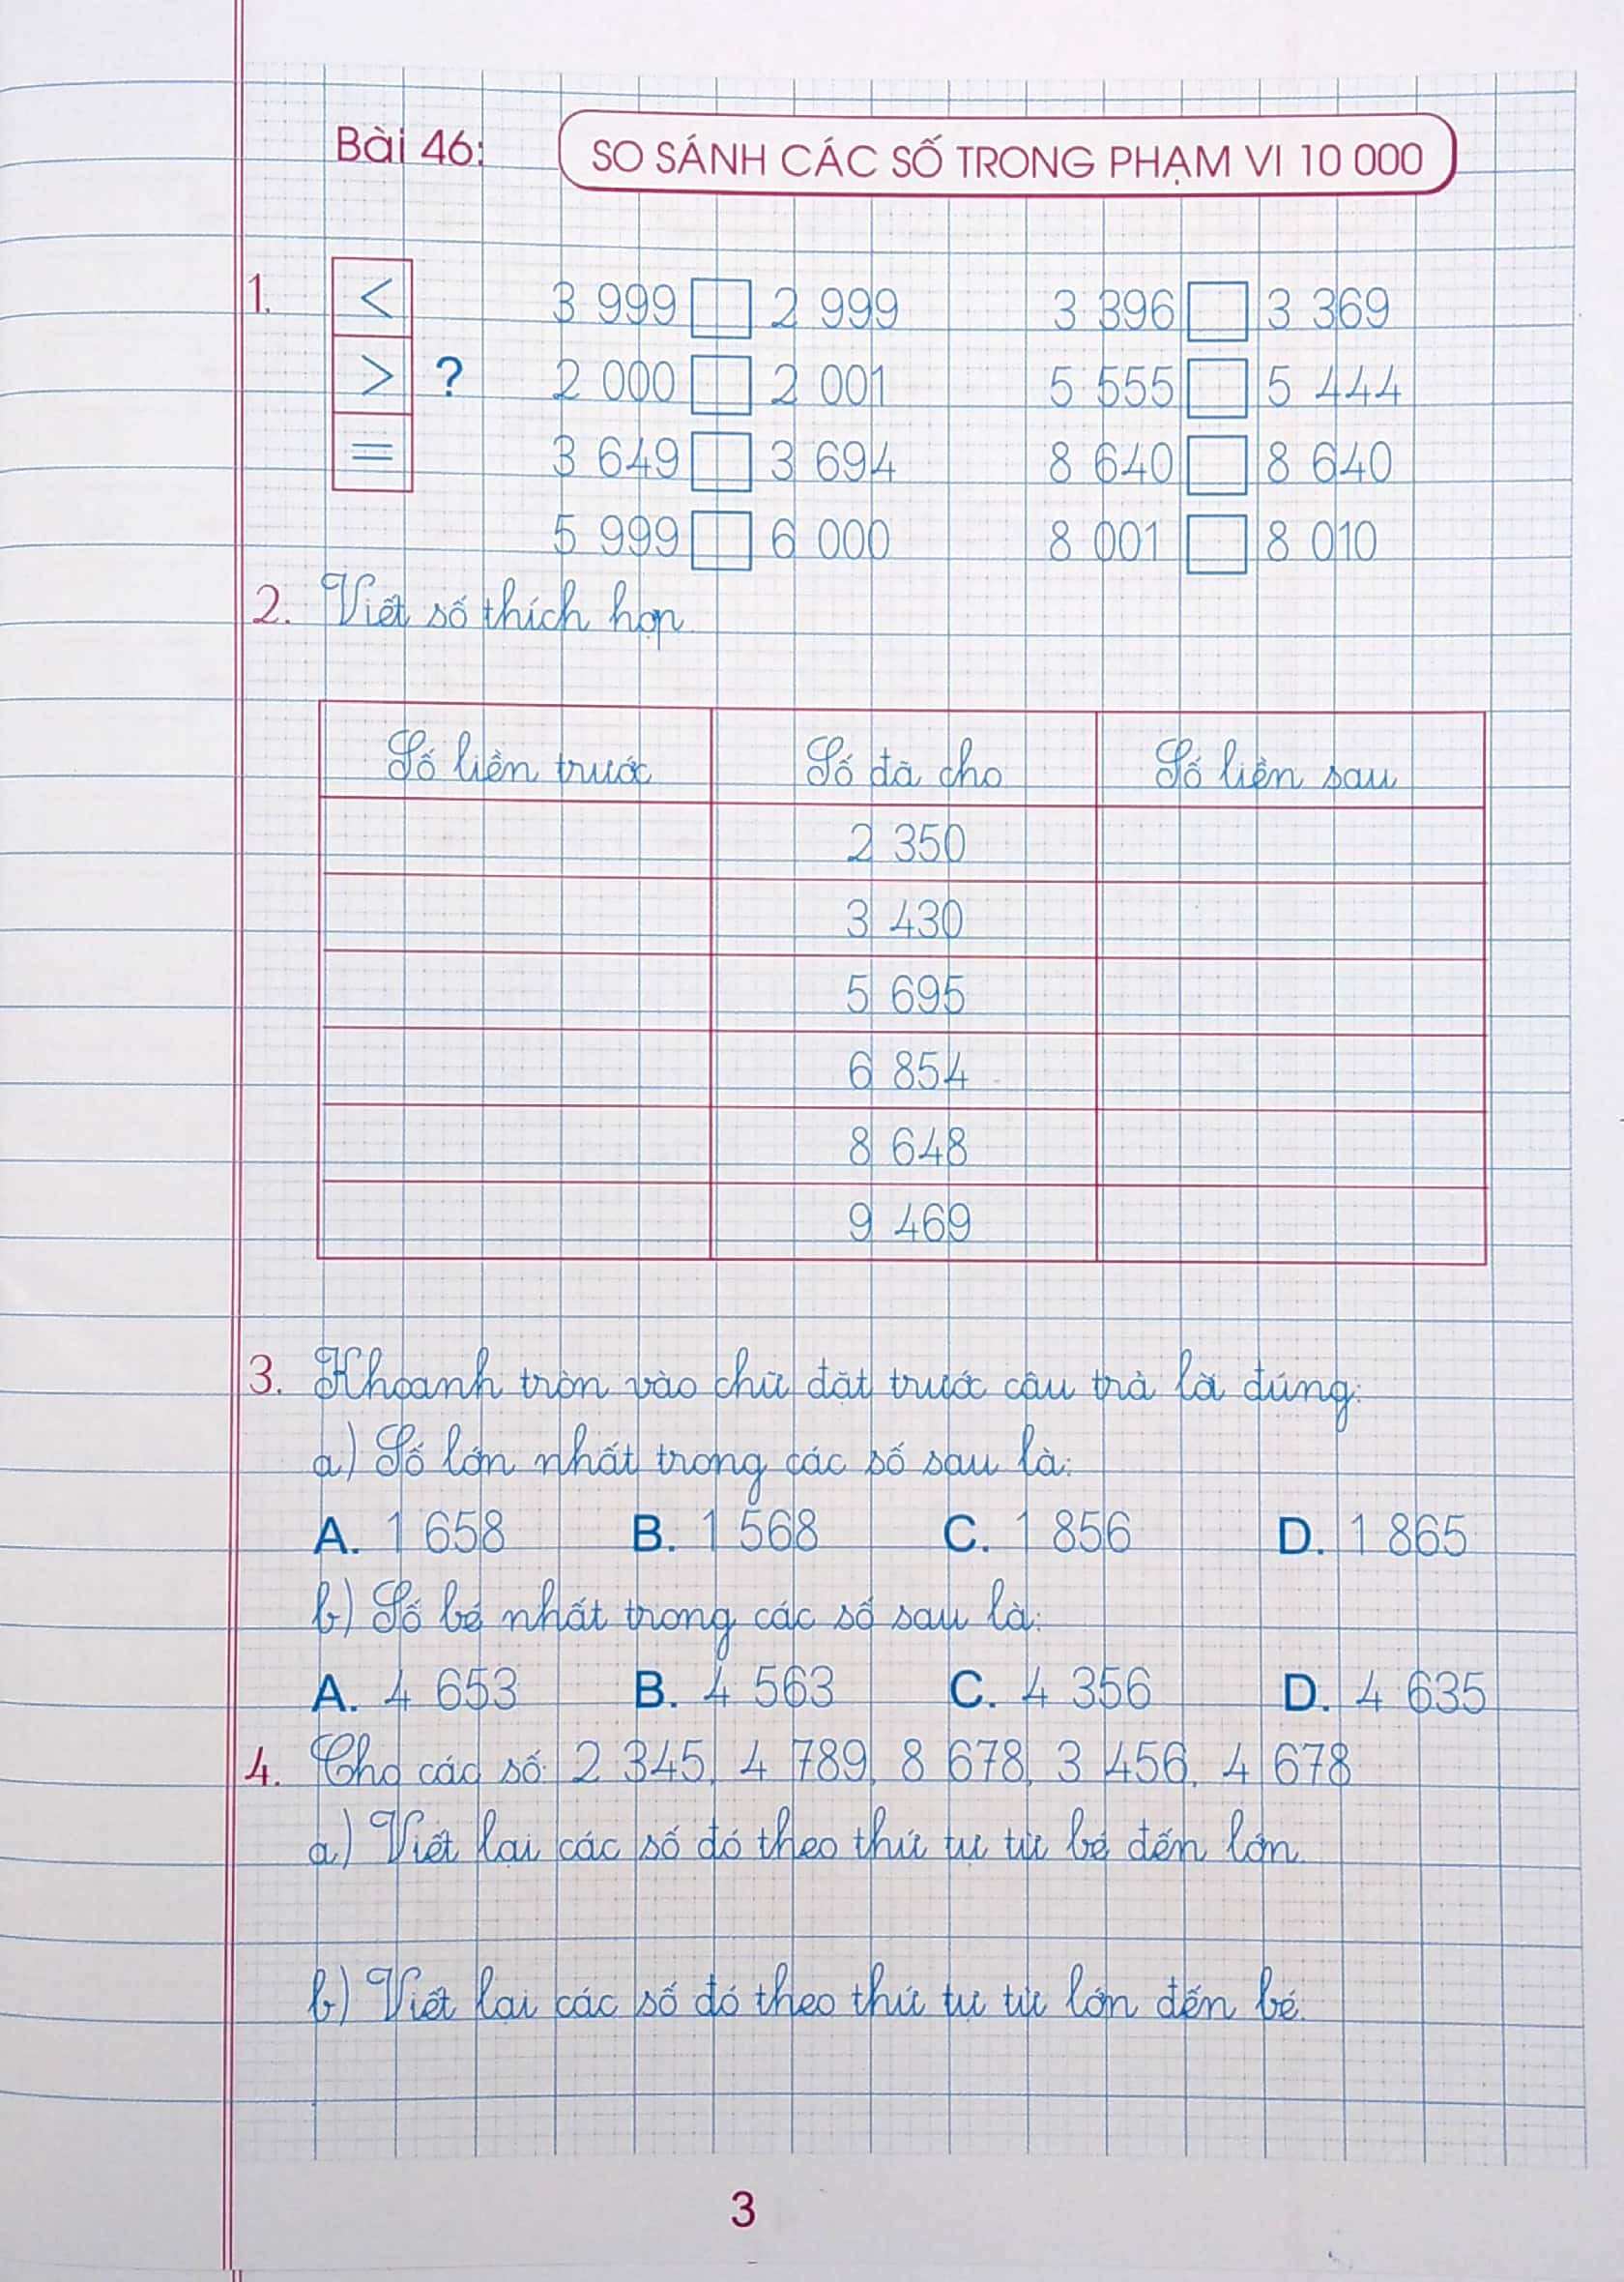 Bài 46: SO SÁNH CÁC SỐ TRONG PHẠM VI 10 000
1. < 3 999 2 999 3 396 3 369
> ? 2 000 2 001 5 555 5 444
= 3 649 3 694 8 640 8 640
5 999 6 000 8 001 8 010
2. Viết số thích hợp.
Số liền trước Số đã cho Số liền sau
2 350
3 430
5 695
6 854
8 648
9 469
3. Khoanh tròn vào chữ đặt trước câu trả lời đúng:
a) Số lớn nhất trong các số sau là:
A. 1 658 B. 1 568 C. 1 856 D. 1 865
b) Số bé nhất trong các số sau là:
A. 4 653 B. 4 563 C. 4 356 D. 4 635
4. Cho các số: 2 345, 4 789, 8 678, 3 456, 4 678
a) Viết lại các số đó theo thứ tự từ bé đến lớn.
b) Viết lại các số đó theo thứ tự từ lớn đến bé.
3